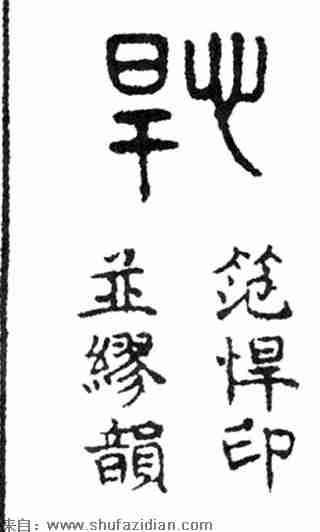 悍
笵悍印
並繆韻
来自：www.shufazidian.com